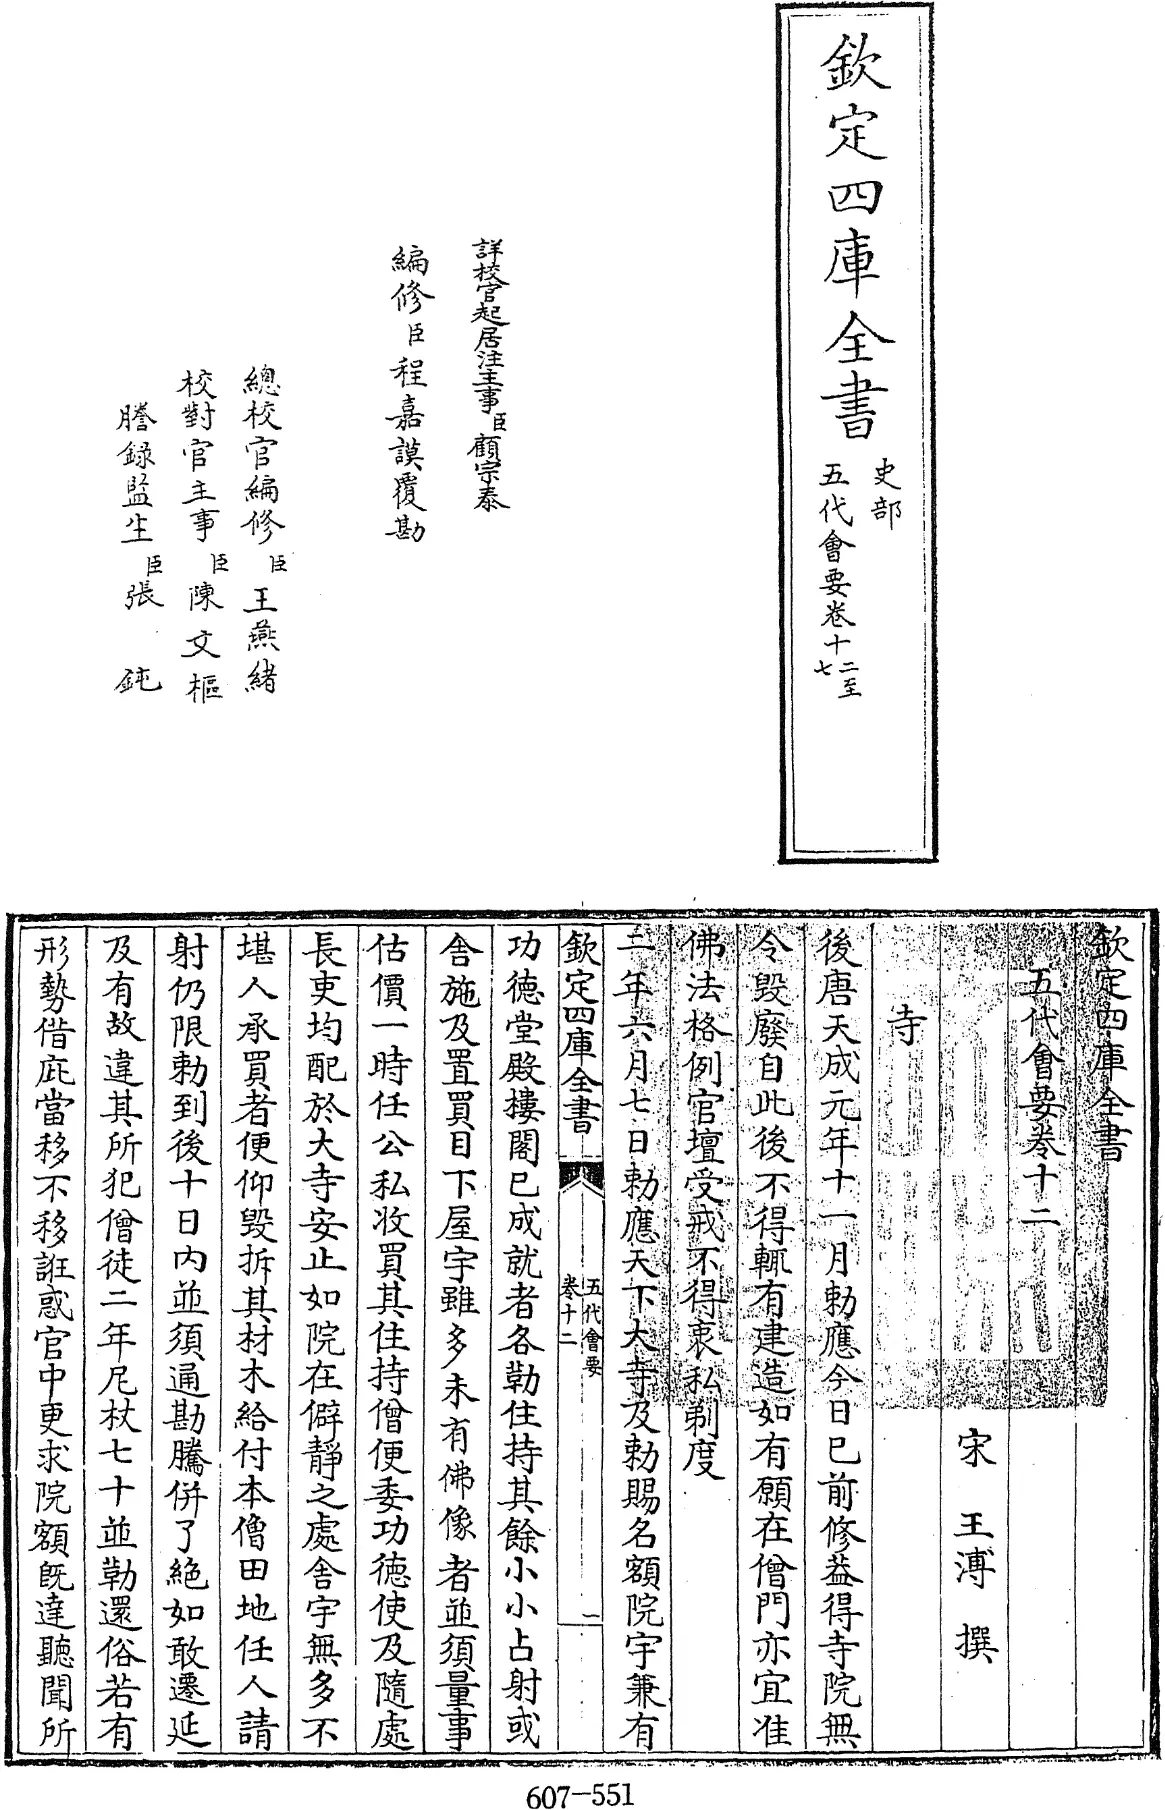 欽定四庫全書
史部
五代會要卷十二至
七
詳校官起居注主事臣顧宗泰
編修臣程嘉謨覆勘
總校官編修臣王燕緒
校對官主事臣陳文樞
謄錄監生臣張鈍
欽定四庫全書
五代會要卷十二
宋 王溥 撰
寺
後唐天成元年十一月勅應今日已前修葢得寺院無
令毀廢自此後不得輒有建造如有願在僧門亦宜准
佛法格例官壇受戒不得衷私剃度
二年六月七日勅應天下大寺及勅賜名額院宇兼有
欽定四庫全書
五代會要
卷十二
一
功德堂殿樓閣已成就者各勒住持其餘小小占射或
舍施及置買目下屋宇雖多未有佛像者並須量事
估價一時任公私收買其住持僧便委功德使及隨處
長吏均配於大寺安止如院在僻靜之處舍宇無多不
堪人承買者便仰毀拆其材木給付本僧田地任人請
射仍限勅到後十日內並須通勘騰併了絕如敢遷延
及有故違其所犯僧徒二年尼杖七十並勒還俗若有
形勢借庇當移不移誑惑官中更求院額旣達聽聞所
607-551